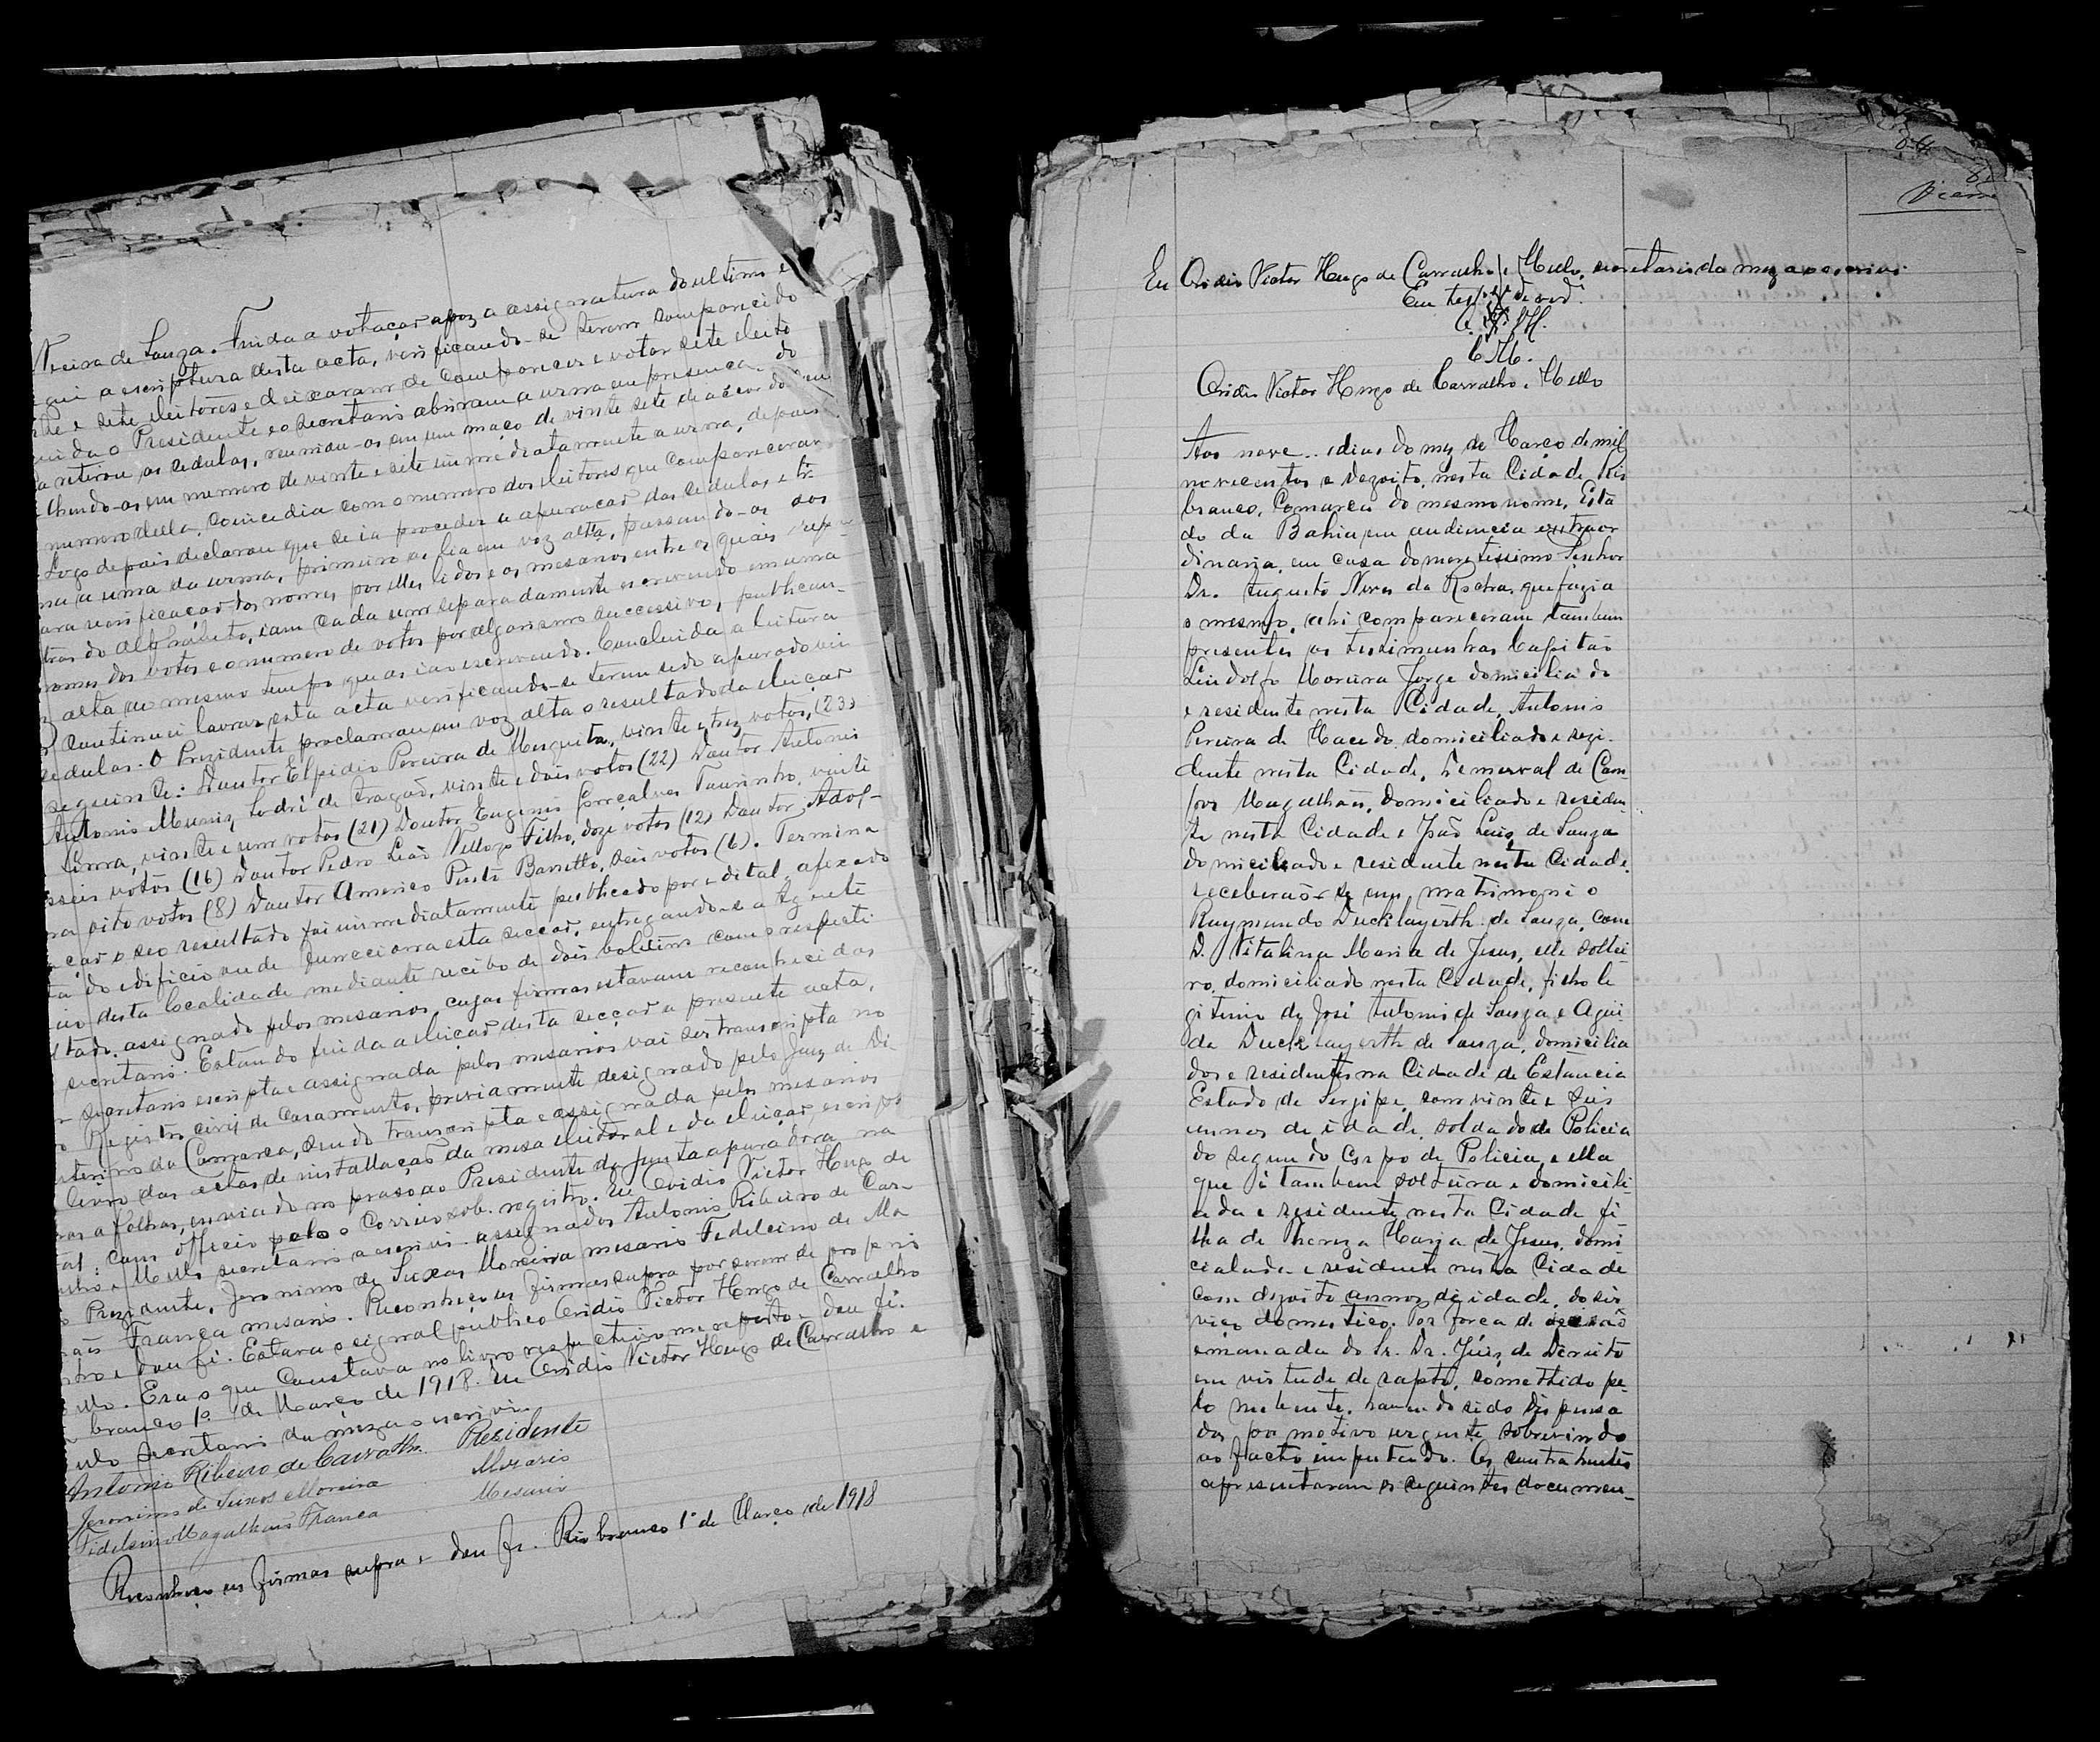 Vieira de Souza. Finda a votação apoz a assignatura do ultimo e
gui a escriptura desta acta, verificando-se terem comparecido
te e sete eleitores e deixaram de comparecer e votar sete eleito
uida o Presidente e o secretario abriram a urna em presença do
a retirou as cedulas, reuniu-as em um maço de vinte sete de acordo
chando-as em numero de vinte e sete immediatamente a urna, depois
numero della, coincedia com o numero dos eleitores que compareceram
Logo depois declarou que se ia proceder a apuração das cedulas e ti
na a uma da urna, primeiro as lia em voz alta, passando-as aos
ara verificação dos nomes, por elles lidos e os mesarios entre os quais
tras do alphabeto, iam cada um separadamente escrevendo em uma
nomes dos votos e o numero de votos por algarismo successivo, publican-
z alta ao mesmo tempo que as iam escrevendo. Concluida a leitura
continuei lavrar esta acta verificando-se terem sedo apurado
cedulas. O Prezidente proclamou em voz alta o resultado da eleição
seguinte: Doutor Elpidio Pereira de Mesquita, vinte e trez votos, (23)
Antonio Muniz Sodré de Aragão, vinte e dois votos (22) Doutor Antonio
vinte e um votos (21) Doutor Eugenio Gonçalves Tourinho, vinte
sseis votos (16) Doutor Pedro Leão Vellozo Filho, doze votos (12) Doutor Adol-
oito votos (8) Doutor Americo Pinto Barretto, seis votos (6). Termina
ção o seo resultado foi immediatamente publicado por edital, afixado
ta do edificio onde funcciona esta secção, entregando-se a Agente
eio desta localidade mediante recibo de dois boletins com o respecti
ltado, assignado pelos mesarios cujas firmas estavam reconhecidas
secretario. Estando finda a eleição desta secção a presente acta,
secretario escripta e assignada pelos mesarios vai ser transcripta no
o Registro civil de casamento, previamente designado pelo Juiz de Di
nterino da Comarca, sendo transcripta e assignada pelos mesarios
livro das actas de installação da mesa eleitoral e da eleição, escripto
ras a folhas, enviado no praso ao Presidente da Junta apuradora na
tal; com officio pelo o Correio sob. registro. Eu Ovidio Victor Hugo de
alho e Mello secretario a escrivi. assignados Antonio Ribeiro de Car-
o Prezidente, Jeronimo de Seixas Moreira mesario Fidelcino de Ma
ães França mesario. Reconheço as firmas supra por serem de proprio
ho e dou fé. Estava o signal publico Ovidio Victor Hugo de Carvalho
ello. Era o que Constava no livro respectivo me reporto e dou fé.
branco 1º de Março de 1918. Eu Ovidio Victor Hugo de Carvalho e
ello secretario da meza o escrivi.
Antonio Ribeiro de Carvalho Presidente
Jeronimo de Seixas Moreira Mezario
Fidelcino Magalhães França Mesario
Reconheço as firmas supra e dou fe. Rio branco 1º de Março de 1918
Eu Ovidio Victor Hugo de Carvalho e Mello, secretario da meza o escrivi
Em test de verd.
C. M.
Ovidio Victor Hugo de Carvalho e Mello
Aos nove dias do mez de Março de mil
novecentos e dezoito, nesta Cidade Rio
branco, Comarca do mesmo nome, Esta
do da Bahia, em audiencia extraor
dinaria, em casa do meretissimo Senhor
Dr. Augusto Neves da Rocha, que fazia
o mesmo, ahi compareceram tambem
presentes as testimunhas Capitão
Lindolfo Moreira Jorge domiciliado
e residente nesta Cidade, Antonio
Pereira de Macedo domiciliado e rezi-
dente nesta Cidade, Demerval de Cam
pos Magalhães, domiciliado e residen
te nesta Cidade e João Luis de Souza
domiciliado e residente nesta Cidade.
receberão-se em matrimonio
Raymundo Ducklayerth de Souza, com
D. Vitalina Maria de Jesus, elle soltei
ro, domiciliado nesta Cidade, filho le
gitimo de José Antonio de Souza e Agui
da Ducklayerth de Souza, domicilia
dos e residentes na Cidade de Estancia
Estado de Sergipe, com vinte e seis
annos de idade, soldado de Policia
do segundo Corpo de Policia, e ella
que é tambem solteira e domicili
ada e residente, nesta Cidade fi
lha de Thereza Maria de Jesus, domi
cialada e residente nesta Cidade
com dezoito annos de idade, do ser
viço domestico. Por força de decizão
emanada do Sr. Dr. Juis de Dereito
em virtude de rapto, comettido pe-
lo nubente, havendo sido dispensa
dos por motivo urgente sobrevindo
ao facto imputado. Os contrahentes
apresentaram os seguintes documen-